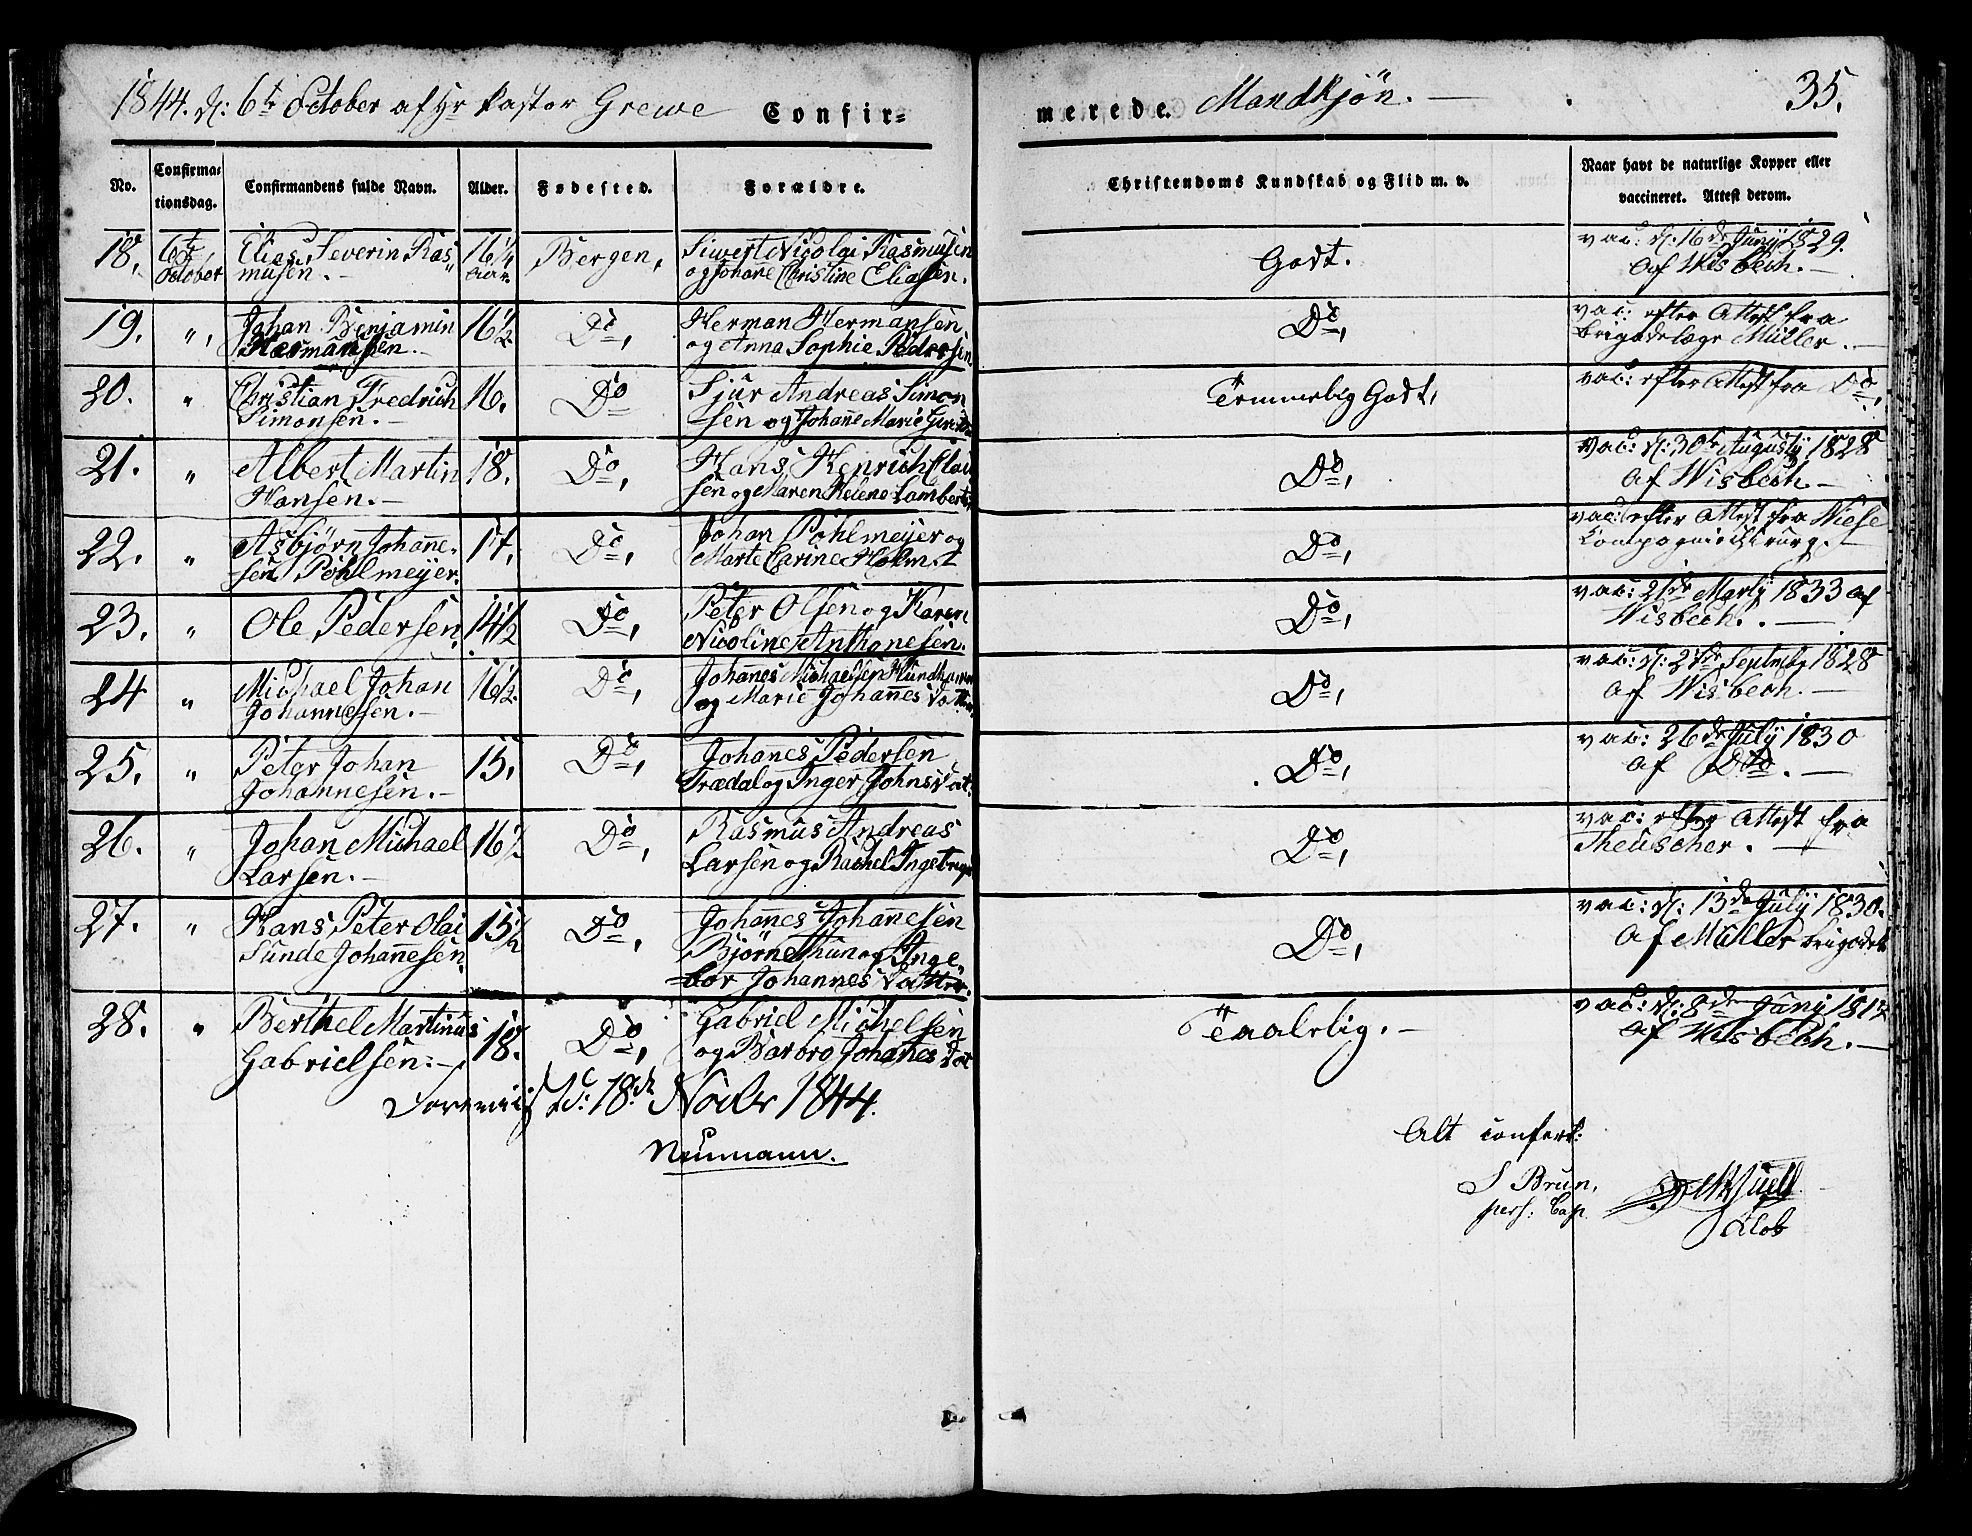 1844. d: 6te October af Hr Pastor Grewe Confir- merede. Mandkjön. 35.
No. Confirma-tionsdag. Confirmandens fulde Navn. Alder. Fødested. Forældre. Christendoms Kundskab og Flid m. v. Naar havt de naturlige Kopper eller vaccineret. Attest derom.
18. 6te October Elias Severin Ras 16 1/4 Aar Bergen, Siwert Nicolai Rasmusen Godt. vac: d: 16de Juny 1829.
musen. og Johane Christine Eliasen. af Wisbech.
19. " Johan Benjamin 16 1/2 Do, Herman Hermansen Do, vac: efter Attest fra
Hermansen. og Anna Sophie Pedersen Brigadelæge Müller.
20. " Christian Fredrich 16. Do Sjur Andreas Simon Temmelig Godt, vac: efter Attest fra Do,
Simonsen. sen og Johane Marie
21. " Albert Martin 18. Do, Hans Henrich Clau Do, vac: d: 30te Augusty 1828
Hansen. sen og Maren Helene Lamberts af Wisbech.
22. " Asbjørn Johane- 17. Do, Johan Pöhlmeyer og Do, vac: efter Attest fra Wiese
sen Pöhlmeyer. Marte Carine Holm. Compagniechirurg.
23. " Ole Pedersen 14 1/2 Do, Peter Olsen og Karen Do, vac: 21de Marty 1833 af
Nicoline Anthonesen. Wisbech.
24 " Michael Johan 16 1/2 Do, Johanes Michaelsen Do, vac: d: Septmb 1828
Johannesen. og Marie Johannes af Wisbech.
25. " Peter Johan 15. Do, Johanes Pedersen Do, vac: 26de July 1830
Johannesen. Trædal og Inger Johns Dat. af Dito.
26. " Johan Michael 16 Do, Rasmus Andreas Do, vac: efter Attest fra
Larsen. Larsen og Rachel Theuscher.
27. " Hans Peter Olai 15 1/2 Do, Johanes Johanesen Do, vac: d: 13de July 1830.
Sunde Johanesen, Bjørnethun og Inge af Müller
bor Johannes Datter.
28. " Berthel Martinus 18. Do, Gabriel Michelsen Taalelig. vac: d: 8de Juny
Gabrielsen. og Barbro Johanes Dat af Wisbech.
Foreviist d: 18de Novbr 1844.
Neumann.
Alt confert:
S Brun,
pers: Cap.
Klok